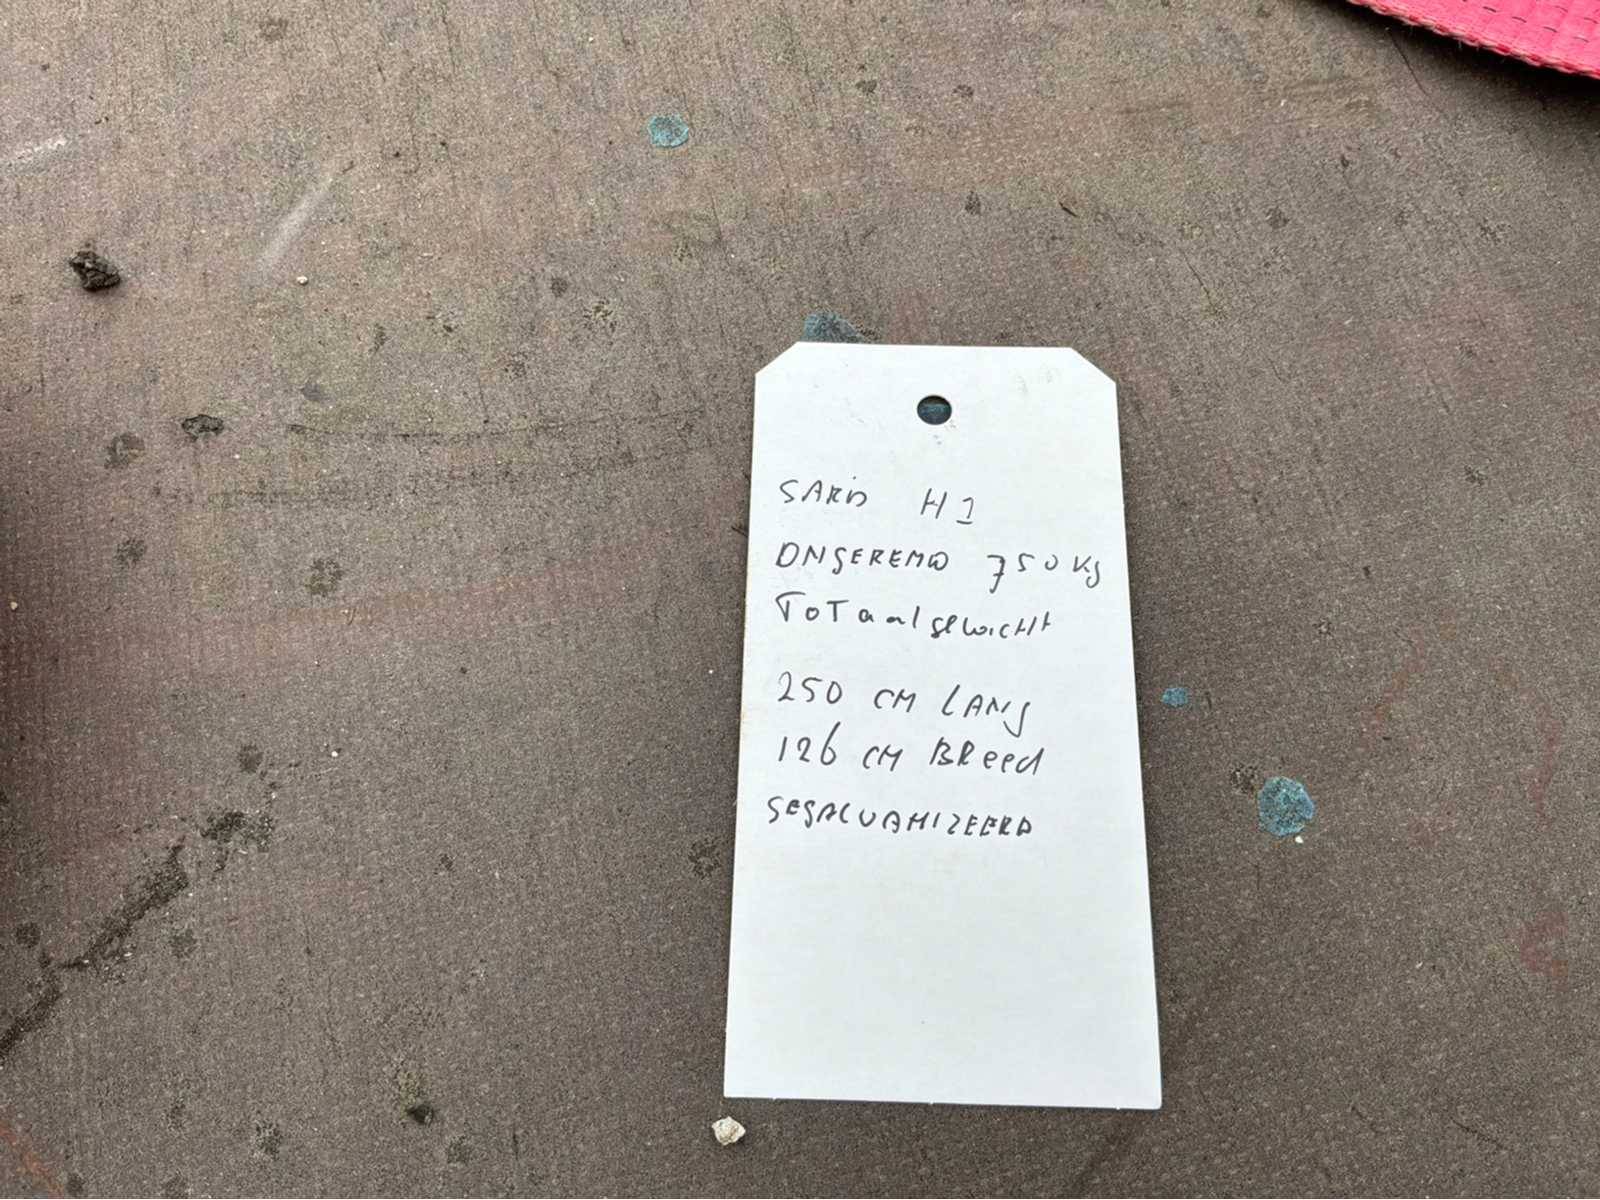 SARIS H1
ONGEREMD 750 Kg
ToTaalgewicHt
250 CM LANg
126 CM BReed
GEGALVANIZEERD